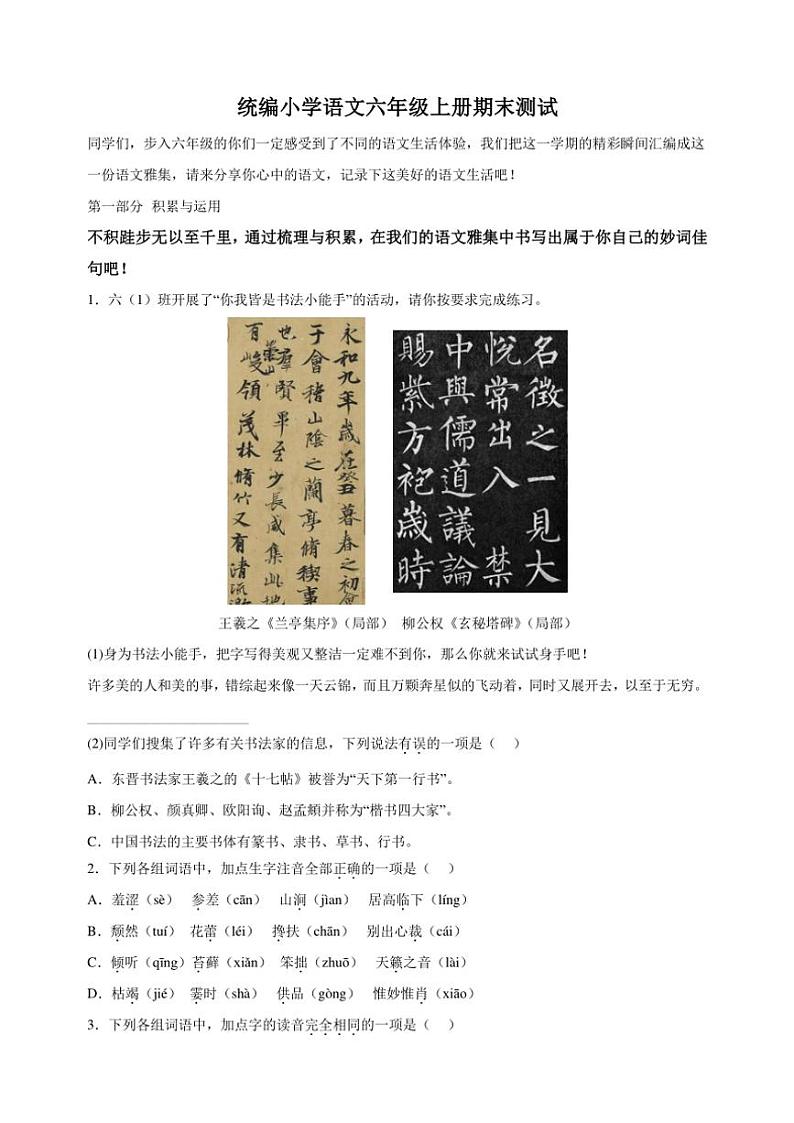 统编小学语文六年级上册期末测试
同学们，步入六年级的你们一定感受到了不同的语文生活体验，我们把这一学期的精彩瞬间汇编成这
一份语文雅集，请来分享你心中的语文，记录下这美好的语文生活吧！
第一部分 积累与运用
不积跬步无以至千里，通过梳理与积累，在我们的语文雅集中书写出属于你自己的妙词佳
句吧！
1．六（1）班开展了“你我皆是书法小能手”的活动，请你按要求完成练习。
永和九年歲在癸丑暮春之初會
于會稽山陰之蘭亭脩稧事
也群賢畢至少長咸集此地
有崇山峻領茂林脩竹又有清流
名徵之一見大
悅常出入禁
中與儒道議論
賜紫方袍歲時
王羲之《兰亭集序》（局部） 柳公权《玄秘塔碑》（局部）
(1)身为书法小能手，把字写得美观又整洁一定难不到你，那么你就来试试身手吧！
许多美的人和美的事，错综起来像一天云锦，而且万颗奔星似的飞动着，同时又展开去，以至于无穷。
(2)同学们搜集了许多有关书法家的信息，下列说法有误的一项是（ ）
A．东晋书法家王羲之的《十七帖》被誉为“天下第一行书”。
B．柳公权、颜真卿、欧阳询、赵孟頫并称为“楷书四大家”。
C．中国书法的主要书体有篆书、隶书、草书、行书。
2．下列各组词语中，加点生字注音全部正确的一项是（ ）
A．羞涩（sè） 参差（cān） 山涧（jìan） 居高临下（líng）
B．颓然（tuí） 花蕾（léi） 搀扶（chān） 别出心裁（cái）
C．倾听（qīng）苔藓（xiǎn） 笨拙（zhuō） 天籁之音（lài）
D．枯竭（jié） 霎时（shà） 供品（gòng） 惟妙惟肖（xiāo）
3．下列各组词语中，加点字的读音完全相同的一项是（ ）